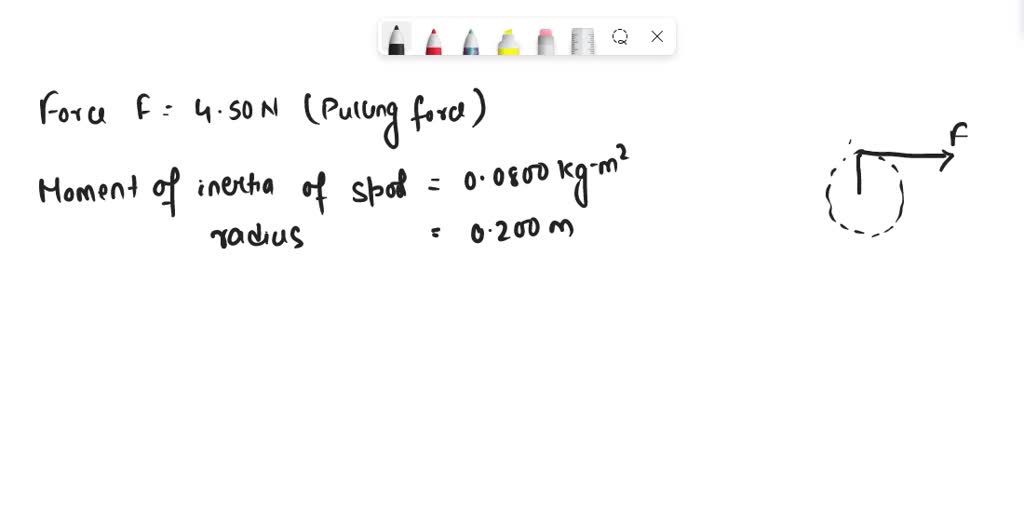 Force F = 4.50N (Pulling force)
F
Moment of inertia of spool = 0.0800 kg-m²
radius = 0.200 m